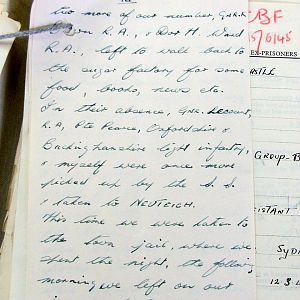 two more of our number, Gnr.
R.A., & Dvr H. Ward
R.A., left to walk back to
the sugar factory for some
food, books, news etc.
In their absence, Gnr.
R.A, Pte Pearce, Oxfordshire &
Buckinghamshire light infantry,
& myself were once more
picked up by the S.S.
& taken to NEUTEICH.
This time we were taken to
the town jail, where we
spent the night, the following
morning we left on our
BF
15/6/45
EX-PRISONERS
GROUP-B
ISTANT
SYD
12 3